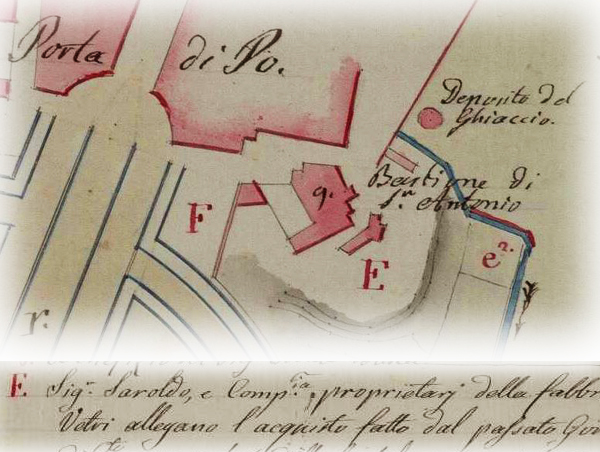 Porta di Po.
Deposito del
Ghiaccio.
Bastione di
S.n Antonio
9.
F
E
e².
r.
E Sig.r Saroldo, e Comp.ia proprietarj della fabbr
Vetri allegano l'acquisto fatto dal passato Gov